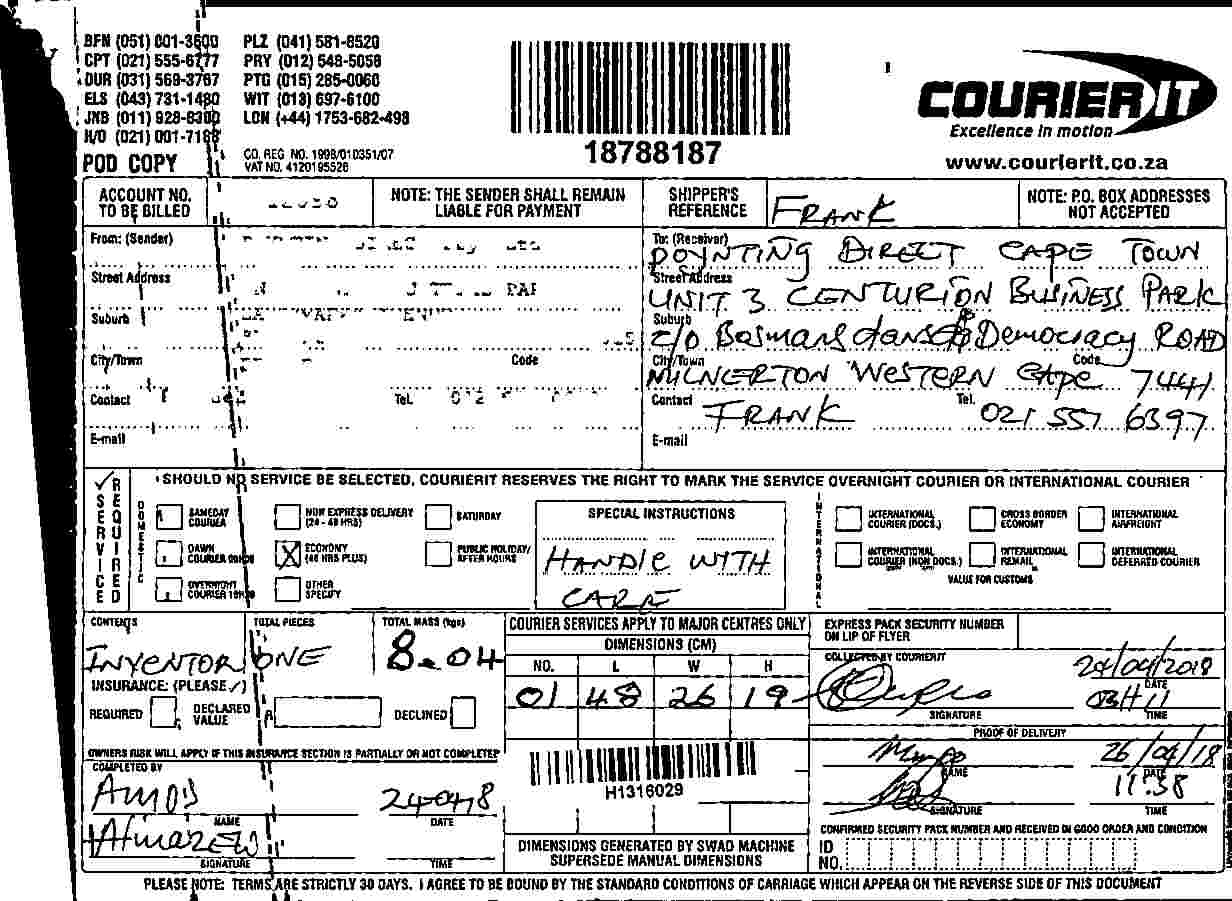 BFN (051) 001-3600 PLZ (041) 581-8520
CPT (021) 555-6777 PRY (012) 548-5058
DUR (031) 569-3767 PTG (015) 285-0060
ELS (043) 731-1480 WIT (013) 697-6100
JNB (011) 928-8300 LON (+44) 1753-682-498
H/O (021) 001-7188
CO. REG NO. 1998/010351/07
POD COPY VAT NO. 4120195528
18788187
COURIER IT
Excellence in motion
www.courierit.co.za
ACCOUNT NO. TO BE BILLED
NOTE: THE SENDER SHALL REMAIN LIABLE FOR PAYMENT
SHIPPER'S REFERENCE FRANK
NOTE: P.O. BOX ADDRESSES NOT ACCEPTED
From: (Sender)
Street Address
Suburb
City/Town Code
Contact Tel. 012
E-mail
To: (Receiver) POYNTING DIRECT CAPE TOWN
Street Address UNIT 3 CENTURION BUSINESS PARK
Suburb c/o Bosmansdans Democracy ROAD
City/Town MILNERTON WESTERN CAPE Code 7441
Contact FRANK Tel. 021 557 6397
E-mail
SERVICE REQUIRED
SHOULD NO SERVICE BE SELECTED, COURIERIT RESERVES THE RIGHT TO MARK THE SERVICE OVERNIGHT COURIER OR INTERNATIONAL COURIER
DOMESTIC
SAMEDAY COURIER
NOW EXPRESS DELIVERY (24 - 48 HRS)
SATURDAY
DAWN COURIER
X ECONOMY (48 HRS PLUS)
PUBLIC HOLIDAY/ AFTER HOURS
OVERNIGHT COURIER
OTHER SPECIFY
SPECIAL INSTRUCTIONS
HANDLE WITH
CARE
INTERNATIONAL
INTERNATIONAL COURIER (DOCS.)
CROSS BORDER ECONOMY
INTERNATIONAL AIRFREIGHT
INTERNATIONAL COURIER (NON DOCS.)
INTERNATIONAL REMAIL
INTERNATIONAL DEFERRED COURIER
VALUE FOR CUSTOMS
CONTENTS TOTAL PIECES TOTAL MASS (kgs)
INVENTOR ONE 8.04
INSURANCE: (PLEASE ✓)
REQUIRED DECLARED VALUE R DECLINED
OWNERS RISK WILL APPLY IF THIS INSURANCE SECTION IS PARTIALLY OR NOT COMPLETED
COMPLETED BY
AMOS
NAME DATE
SIGNATURE TIME
COURIER SERVICES APPLY TO MAJOR CENTRES ONLY
DIMENSIONS (CM)
NO. L W H
01 48 26 19
H1316029
DIMENSIONS GENERATED BY SWAD MACHINE
SUPERSEDE MANUAL DIMENSIONS
EXPRESS PACK SECURITY NUMBER
ON LIP OF FLYER
COLLECTED BY COURIERIT 24/04/2018
DATE
SIGNATURE TIME
PROOF OF DELIVERY
26/04/18
NAME DATE
11:38
SIGNATURE TIME
CONFIRMED SECURITY PACK NUMBER AND RECEIVED IN GOOD ORDER AND CONDITION
ID NO.
PLEASE NOTE: TERMS ARE STRICTLY 30 DAYS. I AGREE TO BE BOUND BY THE STANDARD CONDITIONS OF CARRIAGE WHICH APPEAR ON THE REVERSE SIDE OF THIS DOCUMENT